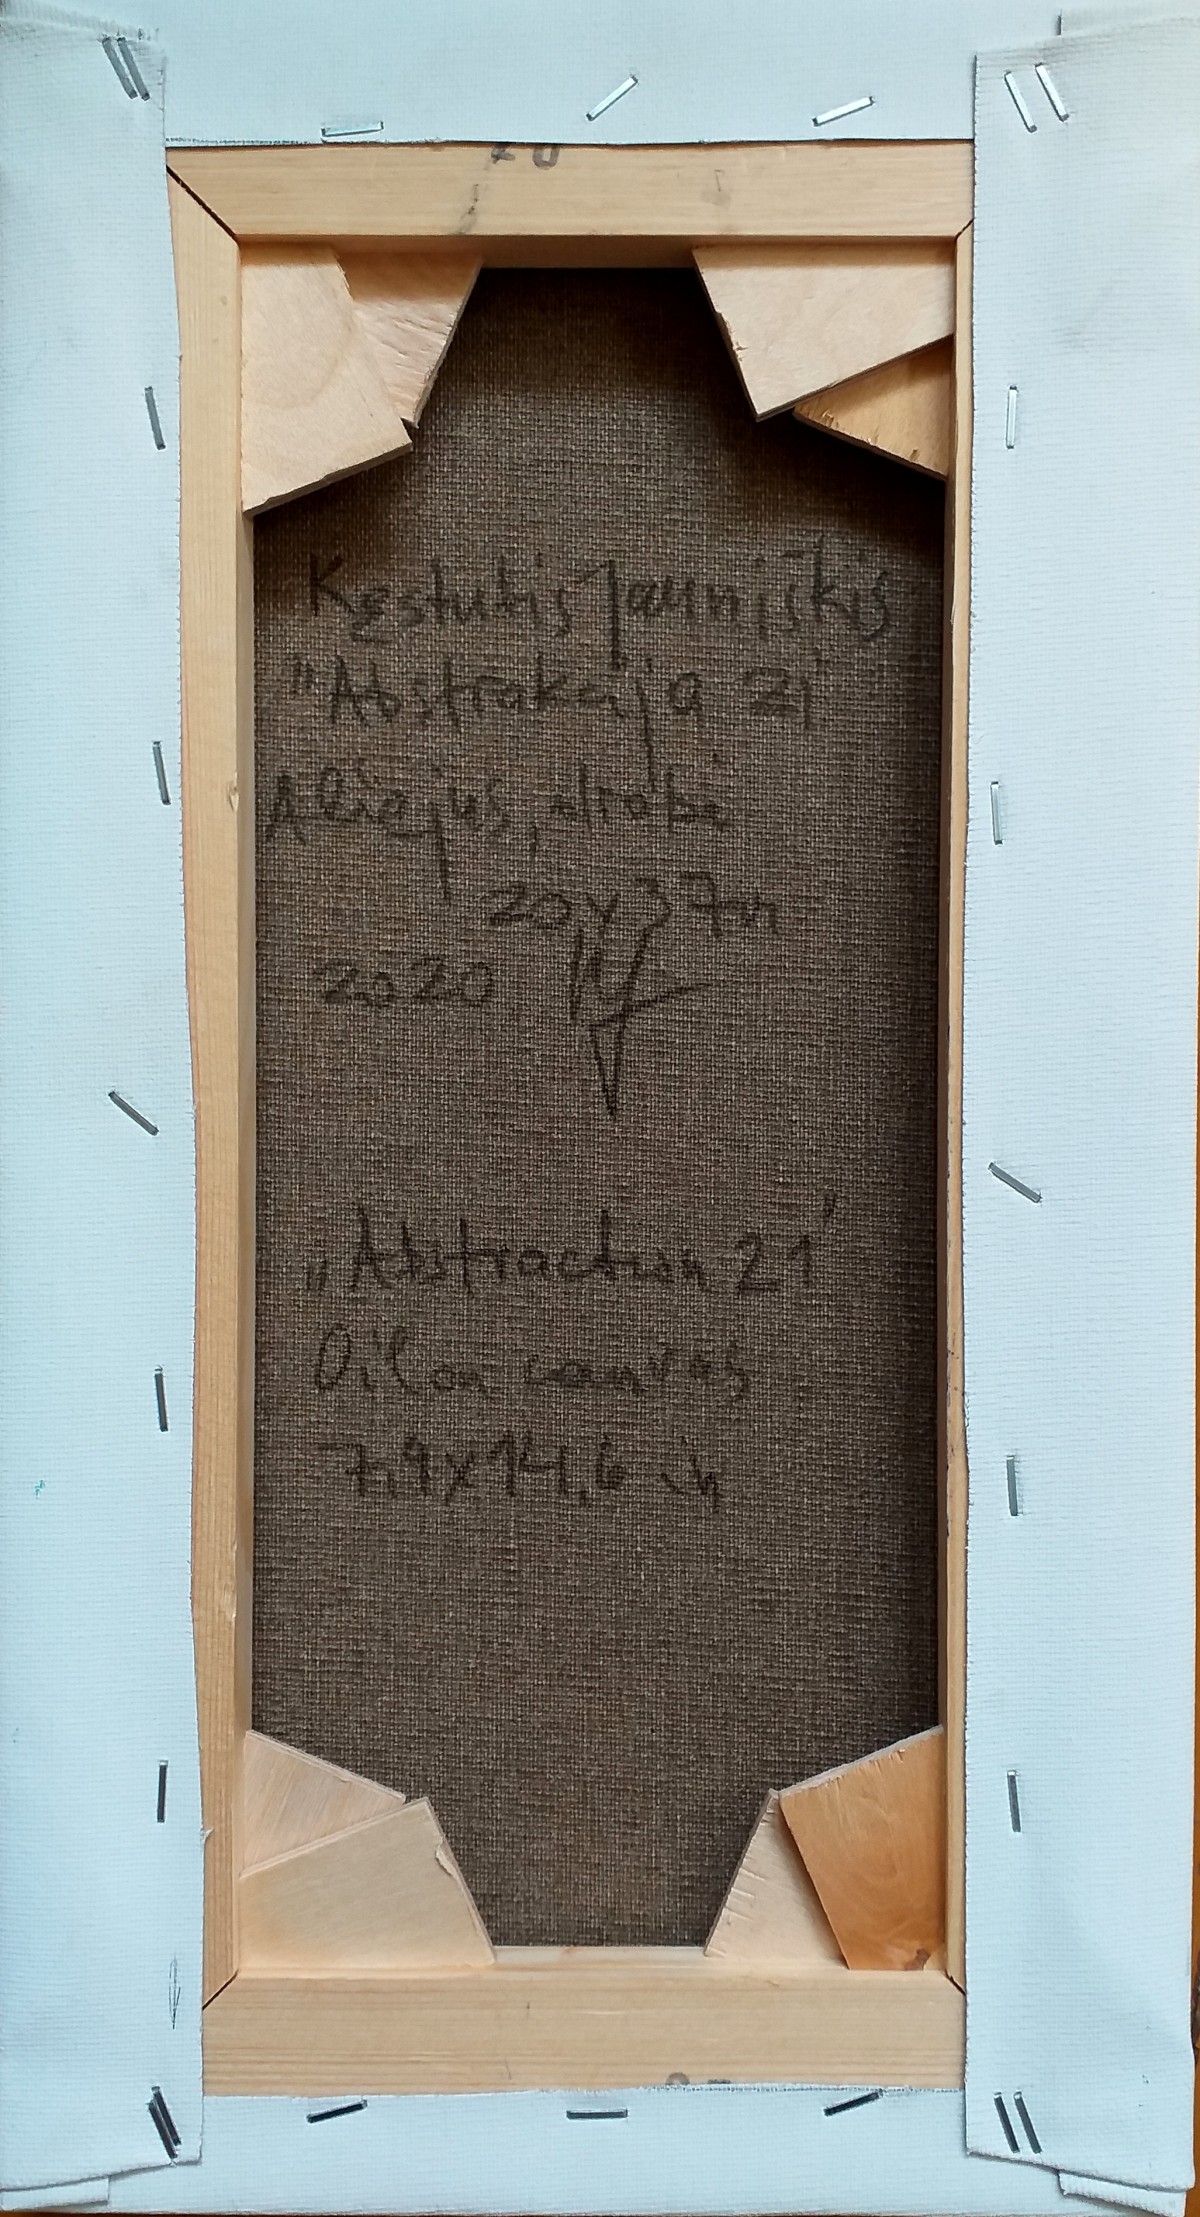 20
Kęstutis Jauniškis
"Abstrakcija 21"
Aliejus, drobė
20x37cm
2020
„Abstraction 21"
Oil on canvas
7,9x14,6 in